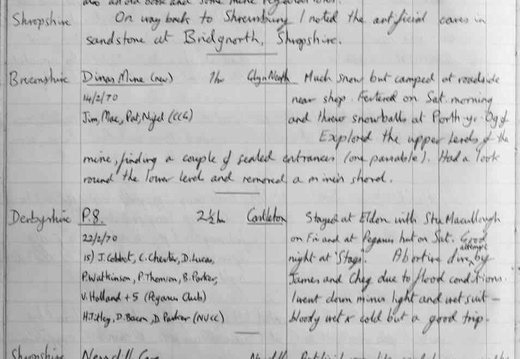 Shropshire On way back to Shrewsbury I noted the artificial caves in
sandstone at Bridgnorth, Shropshire.
Breconshire Dinas Mine (new) 1hr Glyn Neath Much snow but camped at roadside
14/2/70 near shop. Festered on Sat. morning
Jim, Mac, Pat, Nigel (CCG) and threw snowballs at Porth-yr-Ogof
Explored the upper levels of the
mine, finding a couple of sealed entrances (one passable). Had a look
round the lower level and removed a miners shovel.
Derbyshire P.8. 2½h Castleton Stayed at Eldon with Stu Macullough
22/2/70 on Fri and at Pegasus hut on Sat. Good
15) J. Cobbet, C. Chester, D. Lucas, night at 'Stags'. Abortive dive attempt by
P. Watkinson, P. Thomson, B. Parker, James and Cheg due to flood conditions.
V. Holland + 5 (Pegasus Club) I went down minus light and wet suit –
H. J. Hey, D. Bacon, D. Parker (NVCC) bloody wet & cold but a good trip.
Shropshire